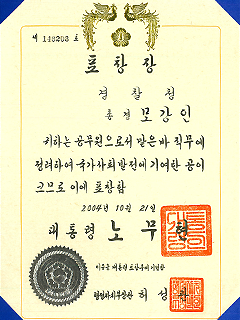 제 148203 호
표창장
경찰청
총경 모강인
귀하는 공무원으로서 맡은바 직무에
정려하여 국가사회발전에 기여한 공이
크므로 이에 표창함
2004년 10월 21일
대통령 노무현
이 증을 대통령 표창부에 기입함
행정자치부장관 허성관